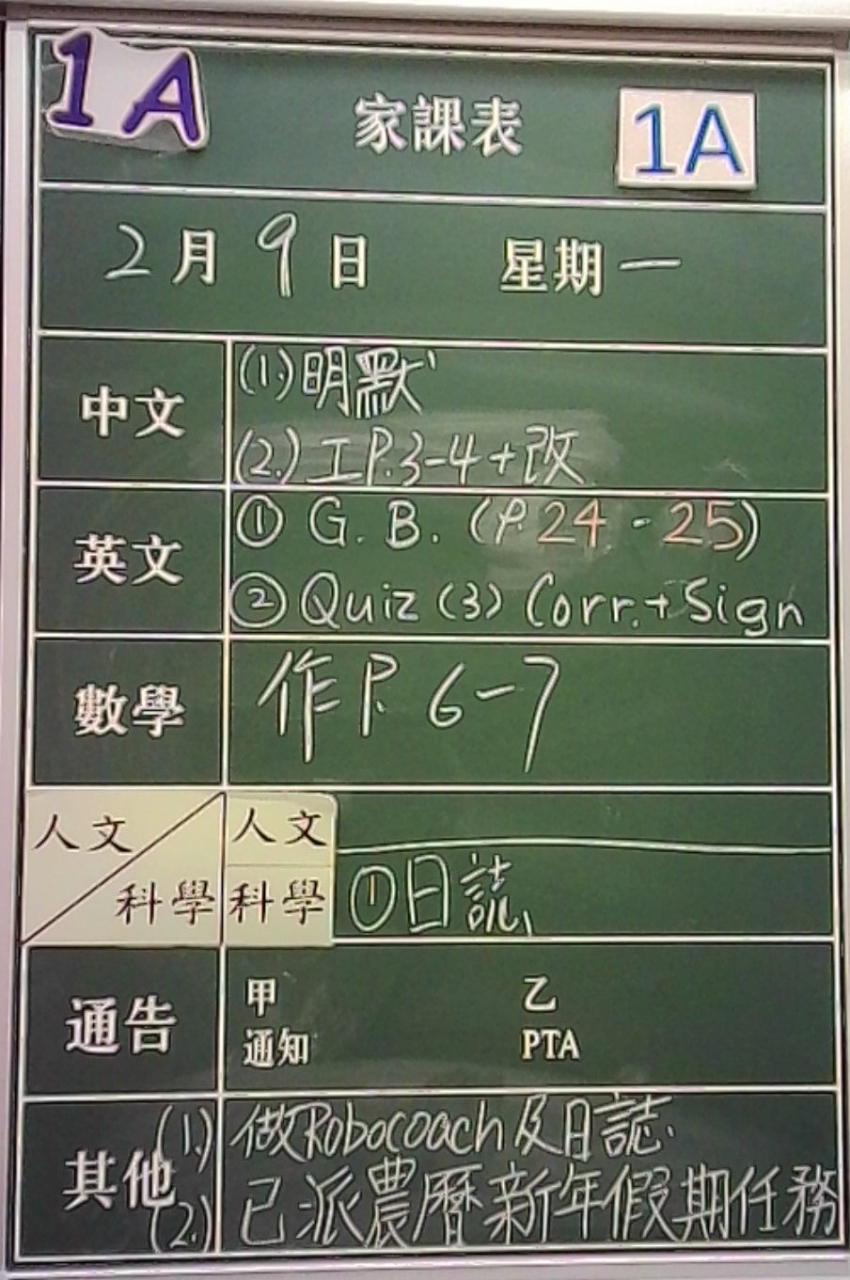 1A 家課表 1A
2月9日 星期一
中文 (1.)明默
(2.)工P.3-4+改
英文 ① G. B. (P.24 - 25)
② Quiz (3) Corr.+Sign
數學 作P. 6-7
人文 人文
科學 科學 ①日誌
通告 甲 乙
通知 PTA
其他 (1.) 做Robocoach及日誌
(2.) 已派農曆新年假期任務